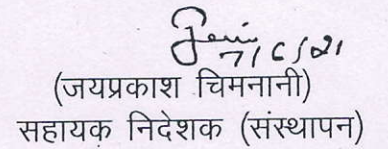 7/6/21
(जयप्रकाश चिमनानी)
सहायक निदेशक (संस्थापन)